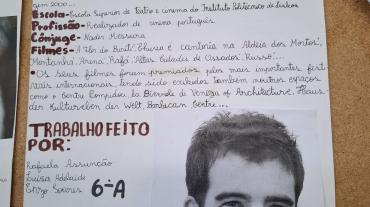 gem 2000...
Escola-Escola Superior de Teatro e cinema do Instituto Politécnico de Lisboa
Profissão-Realizador de cinema português.
Cônjuge-Nader Messora
Filmes- A Flor do Buriti, Chuva é cantoria na Aldeia dos Mortos,
Montanha, Arena, Rafa, Altas Cidades de Ossadas, Russo...
• Os seus filmes foram premiados pelos mais importantes fest
rais internacionais, tendo sido exibidos também noutros espaços
como o Centre Pompidou, la Biennale de Veneza of Architecture, Haus
der Kulturelen der Welt, Barbican Centre...
TRABALHO FEITO
POR:
Rafaela Assunção
Luísa Adelaide
Enzo Soares 6ºA